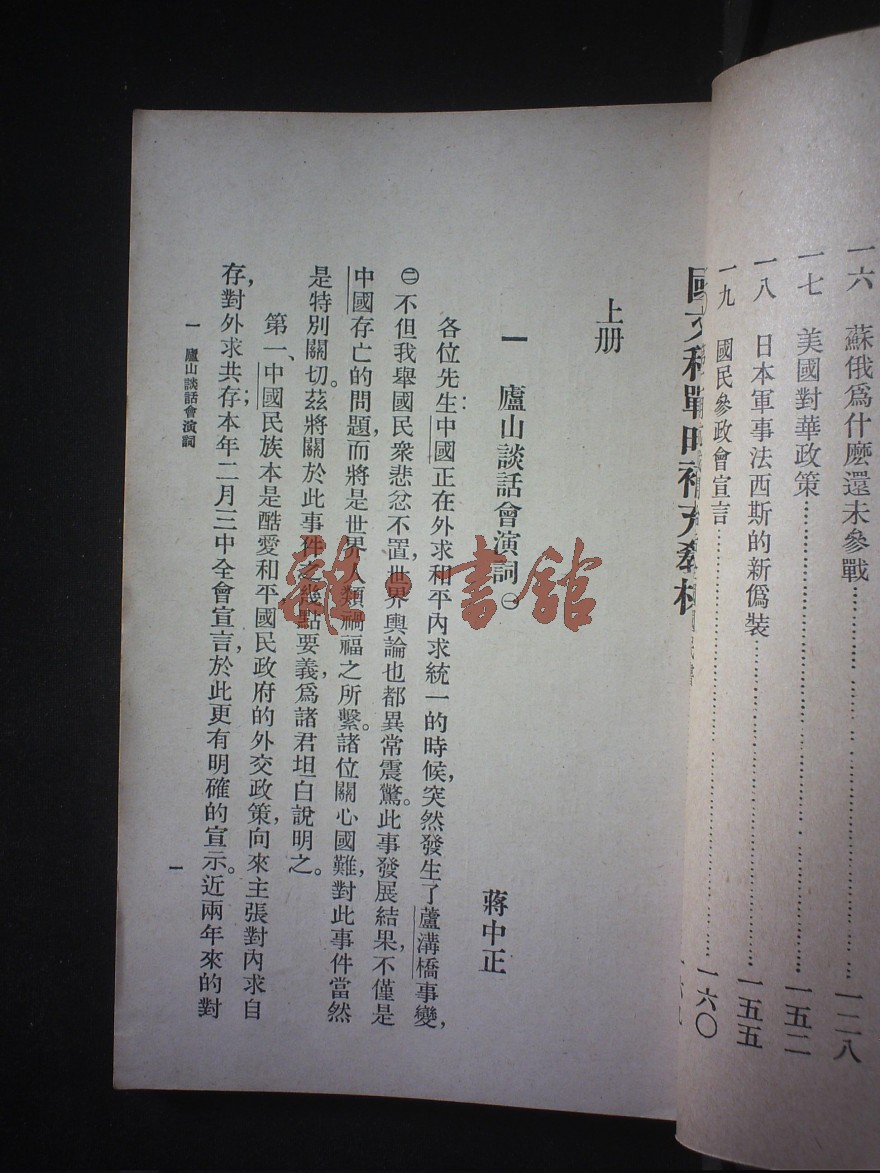 一六　蘇俄爲什麽還未參戰……一二八
一七　美國對華政策……一五二
一八　日本軍事法西斯的新僞裝……一五五
一九　國民參政會宣言……一六〇
國文科戰時補充教材
上册
一　廬山談話會演詞㊀
蔣中正
各位先生：中國正在外求和平內求統一的時候，突然發生了蘆溝橋事變，
㊁不但我舉國民衆悲忿不置，世界輿論也都異常震驚。此事發展結果，不僅是
中國存亡的問題，而將是世界人類禍福之所繫。諸位關心國難，對此事件當然
是特別關切。茲將關於此事件之幾點要義，爲諸君坦白說明之。
第一、中國民族本是酷愛和平，國民政府的外交政策，向來主張對內求自
存，對外求共存；本年二月三中全會宣言，於此更有明確的宣示。近兩年來的對
一　廬山談話會演詞
一
雜·書館